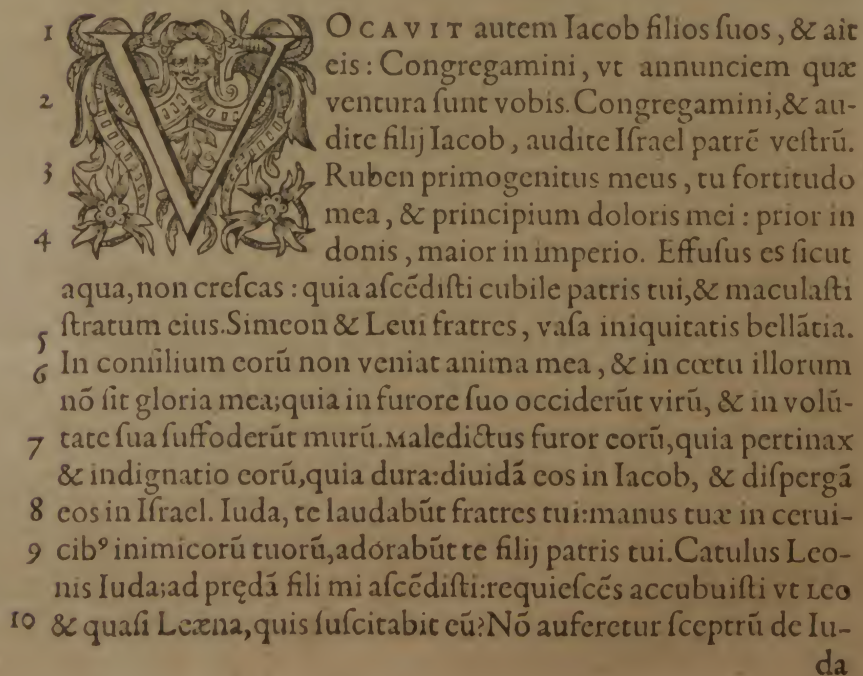 1 VOCAVIT autem Iacob filios ſuos, & ait
eis: Congregamini, vt annunciem quæ
2 ventura ſunt vobis. Congregamini, & au-
dite filij Iacob, audite Iſrael patrē veſtrū.
3 Ruben primogenitus meus, tu fortitudo
mea, & principium doloris mei: prior in
4 donis, maior in imperio. Effuſus es ſicut
aqua, non creſcas: quia aſcēdiſti cubile patris tui, & maculaſti
5 ſtratum eius. Simeon & Leui fratres, vaſa iniquitatis bellātia.
6 In conſilium eorū non veniat anima mea, & in cœtu illorum
nō ſit gloria mea; quia in furore ſuo occiderūt virū, & in volū-
7 tate ſua ſuffoderūt murū. Maledictus furor eorū, quia pertinax
& indignatio eorū, quia dura: diuidā eos in Iacob, & diſpergā
8 eos in Iſrael. Iuda, te laudabūt fratres tui: manus tuæ in cerui-
9 cibꝰ inimicorū tuorū, adorabūt te filij patris tui. Catulus Leo-
nis Iuda; ad prędā fili mi aſcēdiſti: requieſcēs accubuiſti vt Leo
10 & quaſi Leæna, quis ſuſcitabit eū? Nō auferetur ſceptrū de Iu-
da